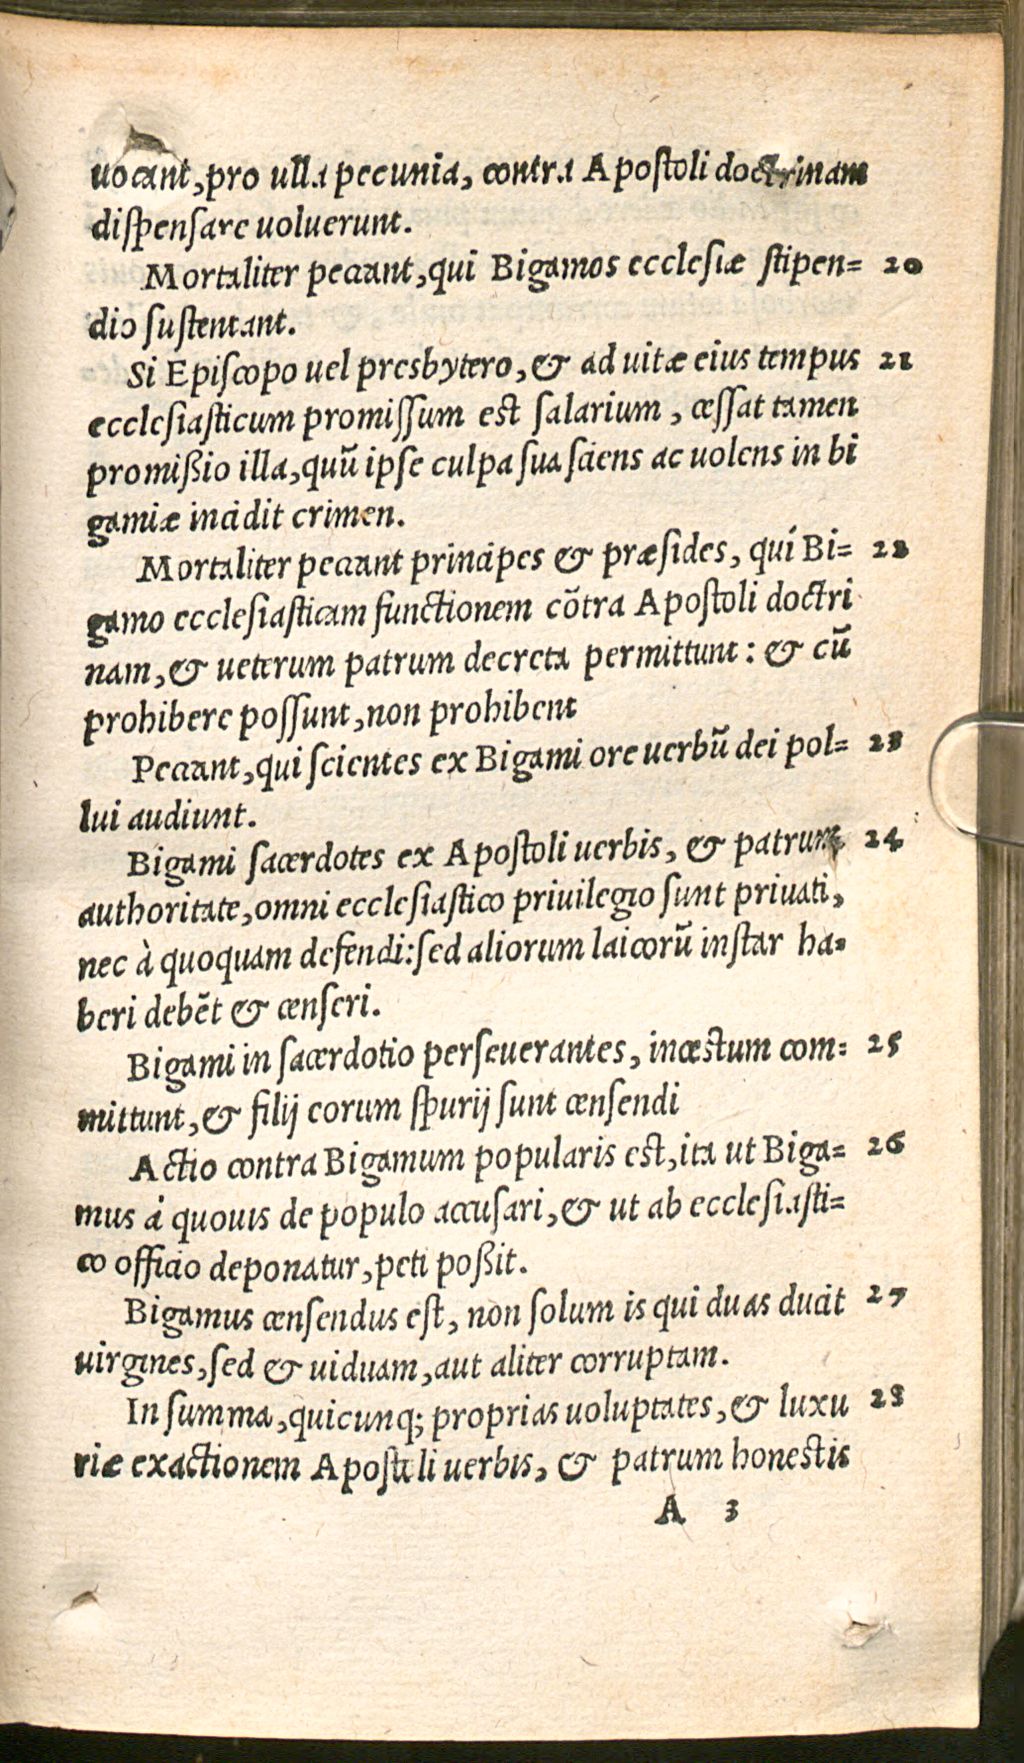 uocant, pro ulla pecunia, contra Apostoli doctrinam
dispensare uoluerunt.
Mortaliter peccant, qui Bigamos ecclesiæ stipen= 20
dio sustentant.
Si Episcopo uel presbytero, & ad uitæ eius tempus 21
ecclesiasticum promissum est salarium, cessat tamen
promißio illa, quū ipse culpa sua sciens ac uolens in bi
gamiæ incidit crimen.
Mortaliter peccant principes & præsides, qui Bi= 22
gamo ecclesiasticam functionem cōtra Apostoli doctri
nam, & ueterum patrum decreta permittunt: & cū
prohibere possunt, non prohibent
Peccant, qui scientes ex Bigami ore uerbū dei pol= 23
lui audiunt.
Bigami sacerdotes ex Apostoli uerbis, & patrum 24
authoritate, omni ecclesiastico priuilegio sunt priuati,
nec à quoquam defendi: sed aliorum laicorū instar ha=
beri debēt & censeri.
Bigami in sacerdotio perseuerantes, incestum com= 25
mittunt, & filij eorum spurij sunt censendi
Actio contra Bigamum popularis est, ita ut Biga= 26
mus à quouis de populo accusari, & ut ab ecclesiasti=
co officio deponatur, peti poßit.
Bigamus censendus est, non solum is qui duas ducit 27
uirgines, sed & uiduam, aut aliter corruptam.
In summa, quicunq; proprias uoluptates, & luxu 28
riæ exactionem Apostoli uerbis, & patrum honestis
A 3